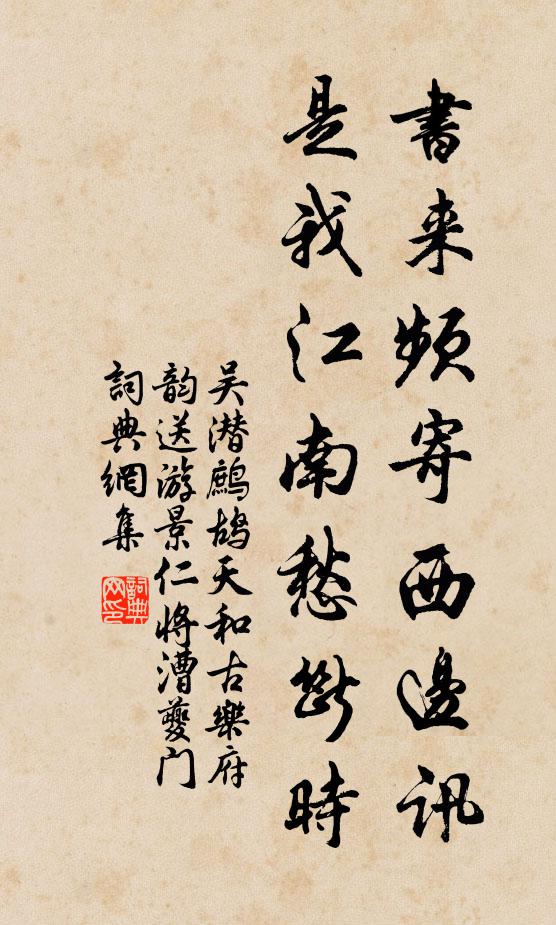 書来頻寄西邊訊
是我江南愁斷時
吴潜鷓鴣天和古樂府
韵送游景仁將漕夔门
詞典網集
詞典
网印